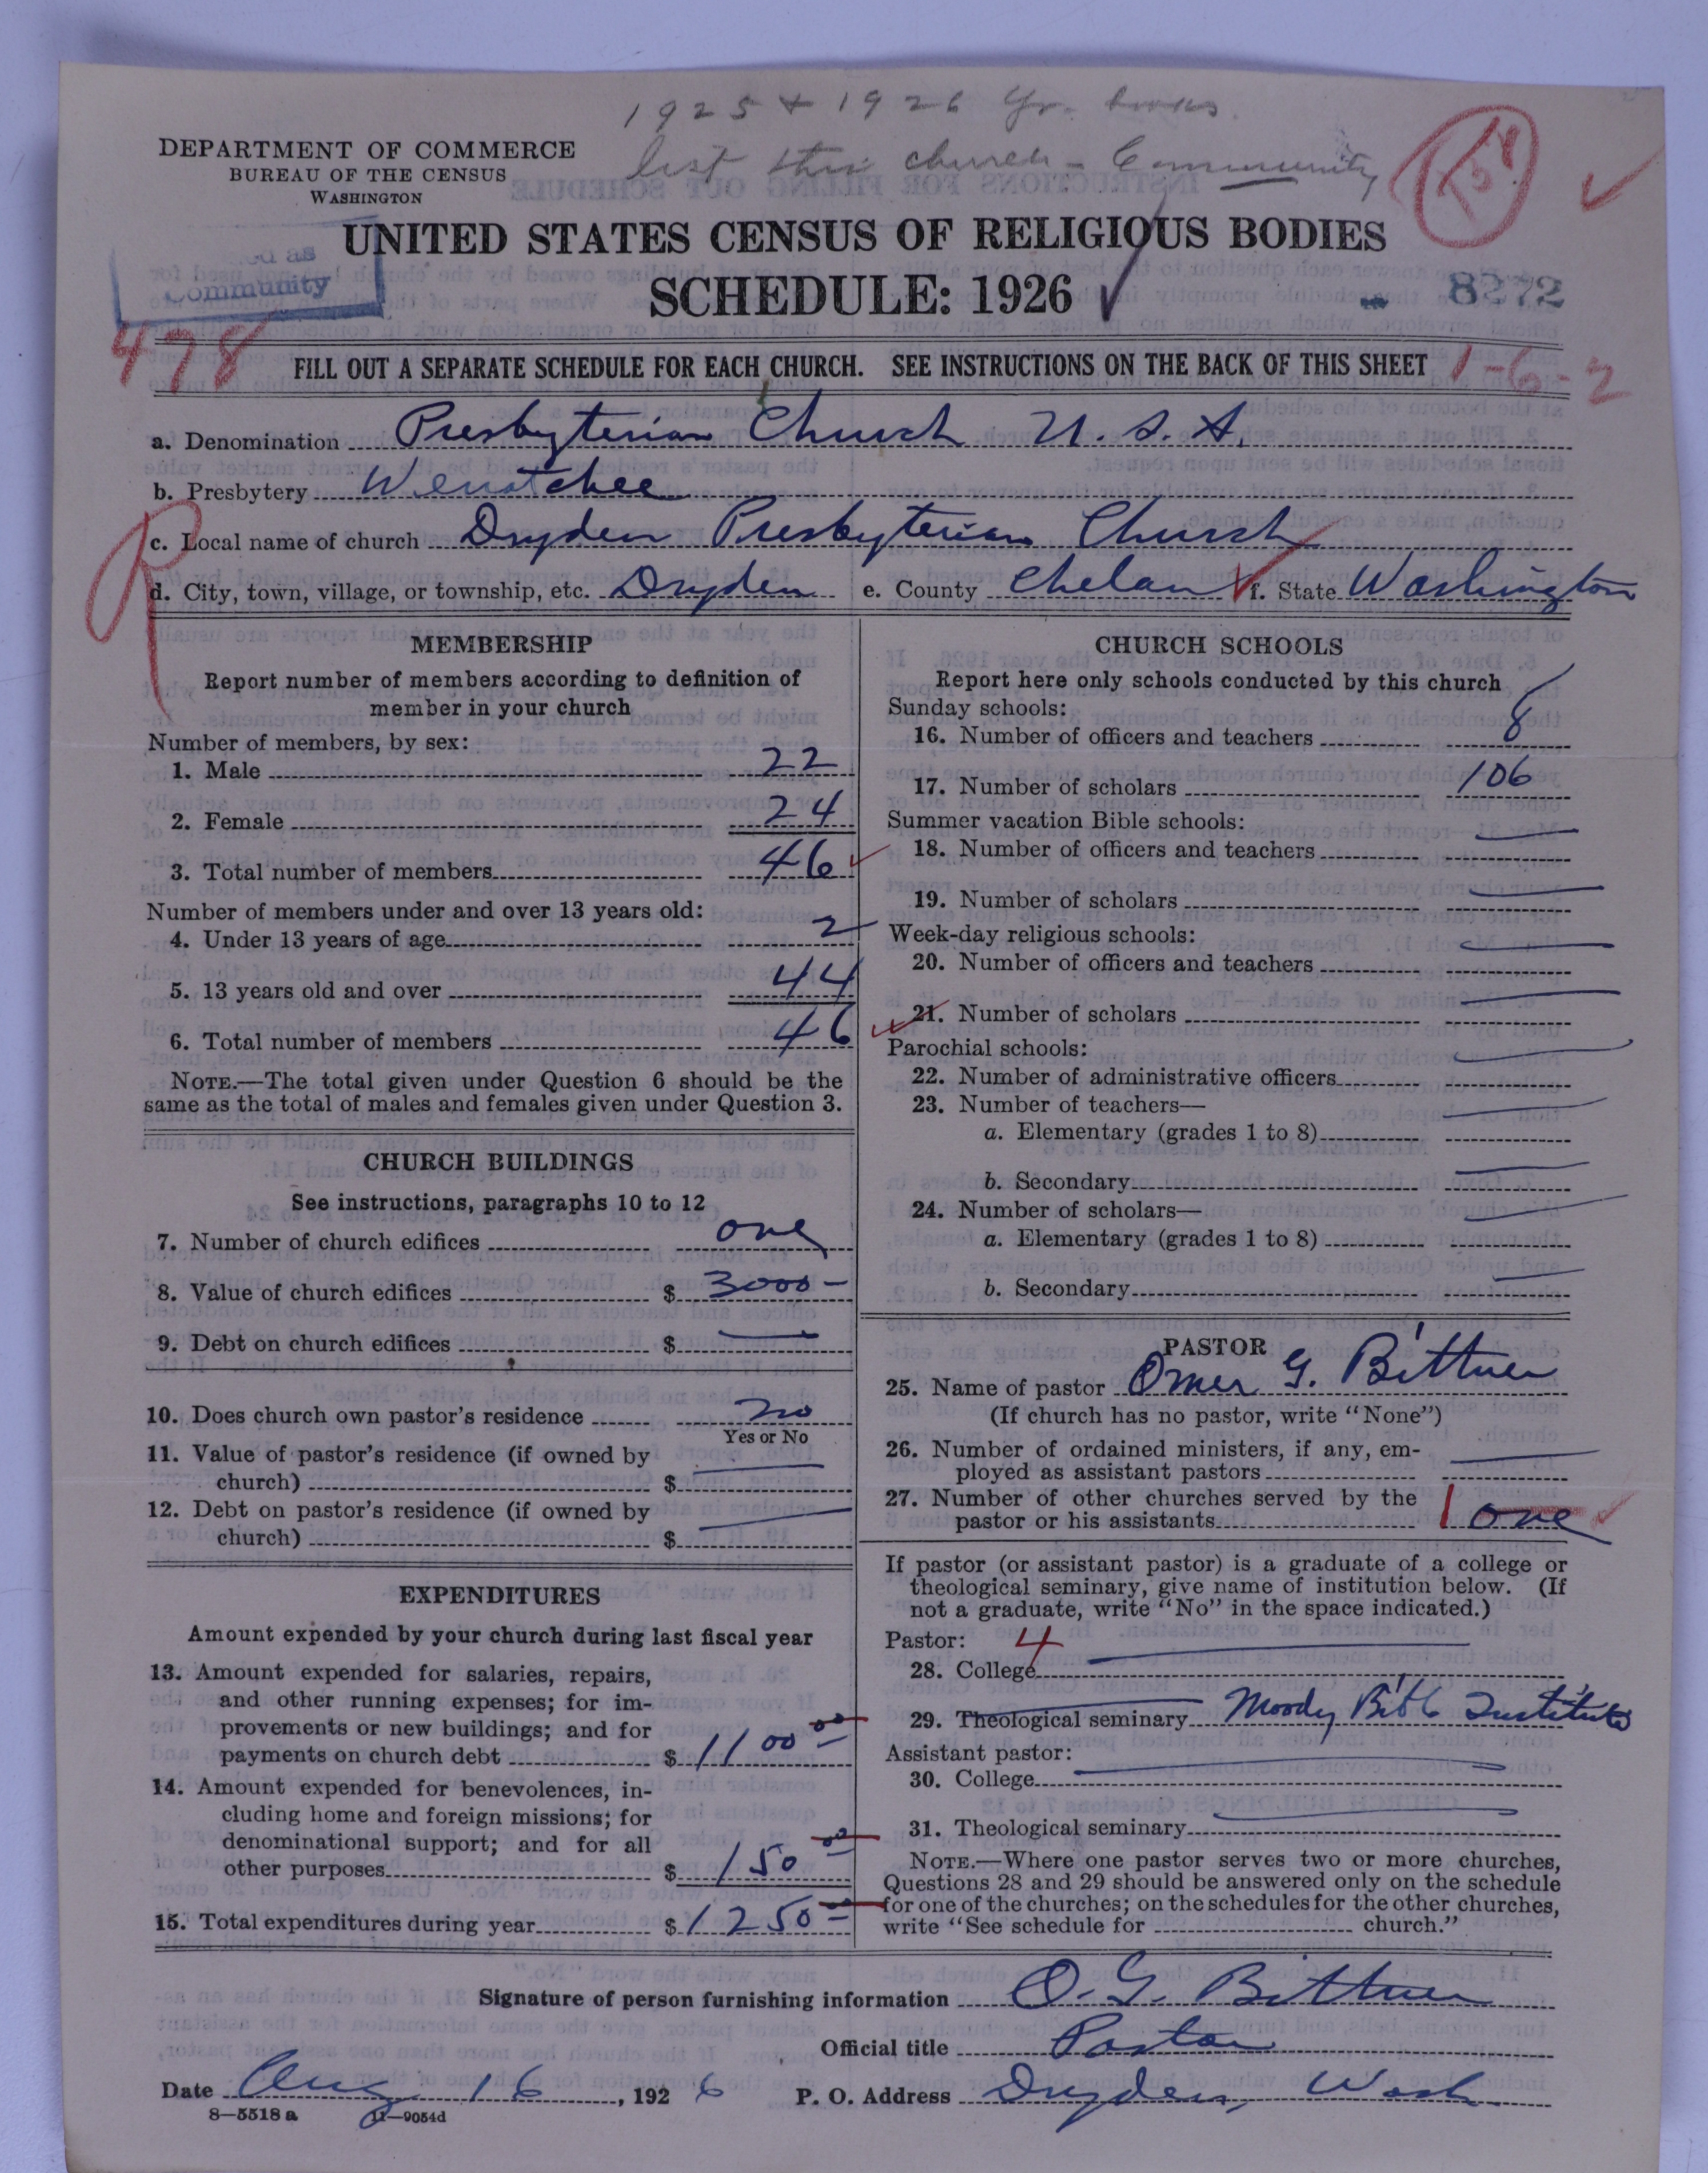 1925 + 1926 Yr. books
list this church - Community
DEPARTMENT OF COMMERCE
BUREAU OF THE CENSUS
WASHINGTON
UNITED STATES CENSUS OF RELIGIOUS BODIES
SCHEDULE: 1926
as
Community
8272
478
FILL OUT A SEPARATE SCHEDULE FOR EACH CHURCH. SEE INSTRUCTIONS ON THE BACK OF THIS SHEET
1-6-2
a. Denomination Presbyterian Church U.S.A.
b. Presbytery Wenatchee
c. Local name of church Dryden Presbyterian Church
d. City, town, village, or township, etc. Dryden e. County Chelan f. State Washington
MEMBERSHIP
Report number of members according to definition of
member in your church
Number of members, by sex:
1. Male 22
2. Female 24
3. Total number of members 46
Number of members under and over 13 years old:
4. Under 13 years of age 2
5. 13 years old and over 44
6. Total number of members 46
NOTE.—The total given under Question 6 should be the
same as the total of males and females given under Question 3.
CHURCH BUILDINGS
See instructions, paragraphs 10 to 12
7. Number of church edifices one
8. Value of church edifices $ 3000 —
9. Debt on church edifices $ —
10. Does church own pastor's residence no
Yes or No
11. Value of pastor's residence (if owned by
church) $ —
12. Debt on pastor's residence (if owned by
church) $ —
EXPENDITURES
Amount expended by your church during last fiscal year
13. Amount expended for salaries, repairs,
and other running expenses; for im-
provements or new buildings; and for
payments on church debt $ 1100 00
14. Amount expended for benevolences, in-
cluding home and foreign missions; for
denominational support; and for all
other purposes $ 150 00
15. Total expenditures during year $ 1250 00
CHURCH SCHOOLS
Report here only schools conducted by this church
Sunday schools:
16. Number of officers and teachers 8
17. Number of scholars 106
Summer vacation Bible schools:
18. Number of officers and teachers —
19. Number of scholars —
Week-day religious schools:
20. Number of officers and teachers —
21. Number of scholars —
Parochial schools:
22. Number of administrative officers —
23. Number of teachers—
a. Elementary (grades 1 to 8) —
b. Secondary —
24. Number of scholars—
a. Elementary (grades 1 to 8) —
b. Secondary —
PASTOR
25. Name of pastor Omer G. Bittner
(If church has no pastor, write "None")
26. Number of ordained ministers, if any, em-
ployed as assistant pastors —
27. Number of other churches served by the
pastor or his assistants 1 one
If pastor (or assistant pastor) is a graduate of a college or
theological seminary, give name of institution below. (If
not a graduate, write "No" in the space indicated.)
Pastor: 4
28. College —
29. Theological seminary Moody Bible Institute
Assistant pastor:
30. College —
31. Theological seminary —
NOTE.—Where one pastor serves two or more churches,
Questions 28 and 29 should be answered only on the schedule
for one of the churches; on the schedules for the other churches,
write "See schedule for church."
Signature of person furnishing information O. G. Bittner
Official title Pastor
Date Aug 16, 1926 P. O. Address Dryden, Wash.
8—5518 a 11—9054d